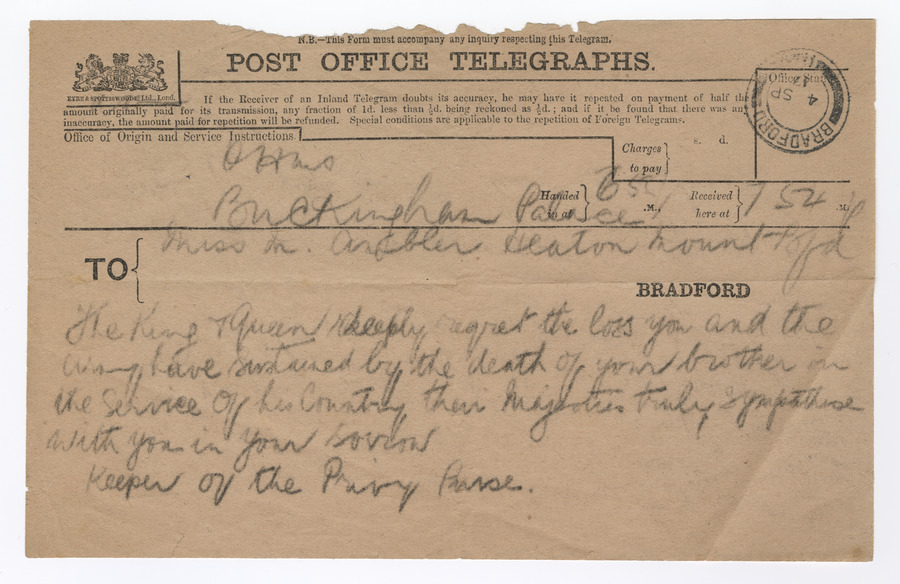 N.B.—This Form must accompany any inquiry respecting this Telegram.
POST OFFICE TELEGRAPHS.
EYRE & SPOTTISWOODE, Ltd., Lond.
If the Receiver of an Inland Telegram doubts its accuracy, he may have it repeated on payment of half the
amount originally paid for its transmission, any fraction of 1d. less than ½d. being reckoned as ½d.; and if it be found that there was any
inaccuracy, the amount paid for repetition will be refunded. Special conditions are applicable to the repetition of Foreign Telegrams.
Office Stamp
BRADFORD
4 SP
Office of Origin and Service Instructions.
OHMS
Charges to pay
s. d.
Buckingham Palace
Handed in at
6 55
.M.,
Received here at
7 52
.M.
TO
Miss M. Ambler Heaton Mount Bfd
BRADFORD
The King & Queen deeply regret the loss you and the
army have sustained by the death of your brother in
the Service of his Country their Majesties truly sympathise
with you in your sorrow
Keeper of the Privy Purse.